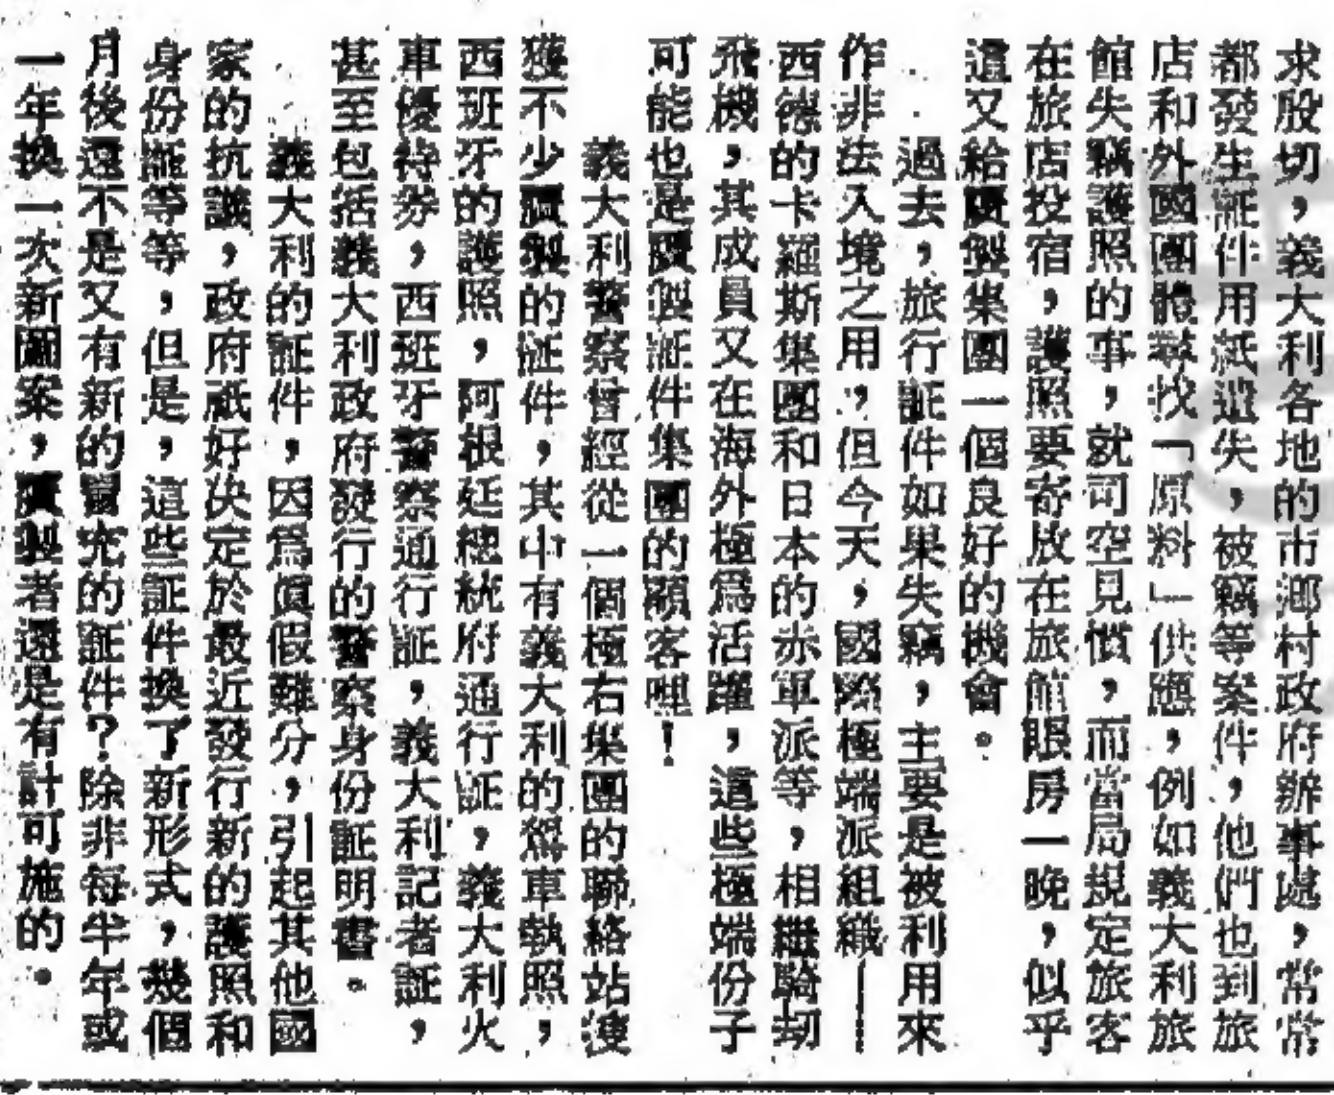 求殷切，義大利各地的市鄉村政府辦事處，常常
都發生証件用紙遺失，被竊等案件，他們也到旅
店和外國團體尋找「原料」供應，例如義大利旅
館失竊護照的事，就司空見慣，而當局規定旅客
在旅店投宿，護照要寄放在旅館賬房一晚，似乎
這又給贋製集團一個良好的機會。
過去，旅行証件如果失竊，主要是被利用來
作非法入境之用，但今天，國際極端派組織——
西德的卡羅斯集團和日本的赤軍派等，相繼騎劫
飛機，其成員又在海外極爲活躍，這些極端份子
可能也是贋製証件集團的顧客哩！
義大利警察曾經從一個極右集團的聯絡站搜
獲不少贋製的証件，其中有義大利的駕車執照，
西班牙的護照，阿根廷總統府通行証，義大利火
車優待券，西班牙警察通行証，義大利記者証，
甚至包括義大利政府發行的警察身份証明書。
義大利的証件，因爲眞假難分，引起其他國
家的抗議，政府祇好決定於最近發行新的護照和
身份証等等，但是，這些証件換了新形式，幾個
月後還不是又有新的冒充的証件？除非每半年或
一年換一次新圖案，贋製者還是有計可施的。